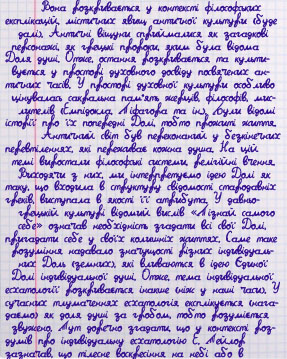 Вона розкривається у контексті філософських
експлікацій, містичних явищ античної культури буде
далі. Античні віщуни сприймалися як загадкові
персонажі, як грецькі пророки, яким була відома
Доля душі. Отже, остання розкривається та культи-
вується у просторі духовного досвіду посвячених ан-
тичних часів. У просторі духовної культури особливо
цінувалась сакральна пам'ять жерців, філософів, мис-
лителів (Емпідокла, Піфагора та ін.). Були відомі
історії про їх попередні Долі, тобто прожиті життя.
Античний світ був переконаний у безкінечних
перевтіленнях, які переживає кожна душа. На цій
темі виростали філософські системи, релігійні вчення.
Виходячи з них, ми інтерпретуємо ідею Долі як
таку, що входила в структуру свідомості стародавніх
греків, виступала в якості її атрибута. У давньо-
грецькій культурі відомий вислів «Пізнай самого
себе» означав необхідність згадати всі свої Долі,
пригадати себе у своїх колишніх життях. Саме таке
розуміння надавало значущості різних індивідуаль-
них Доль (земних), які вливаються в ідею Єдиної
Долі індивідуальної душі. Отже, тема індивідуальної
есхатології розкривається інакше ніж у наші часи. У
сучасних тлумаченнях есхатологія експлікується (нага-
даємо) як доля душі за гробом, тобто розуміється
звужено. Тут доречно згадати, що у контексті роз-
думів про індивідуальну есхатологію Е. Тейлор
зазначав, що тілесне воскресіння на небі або в